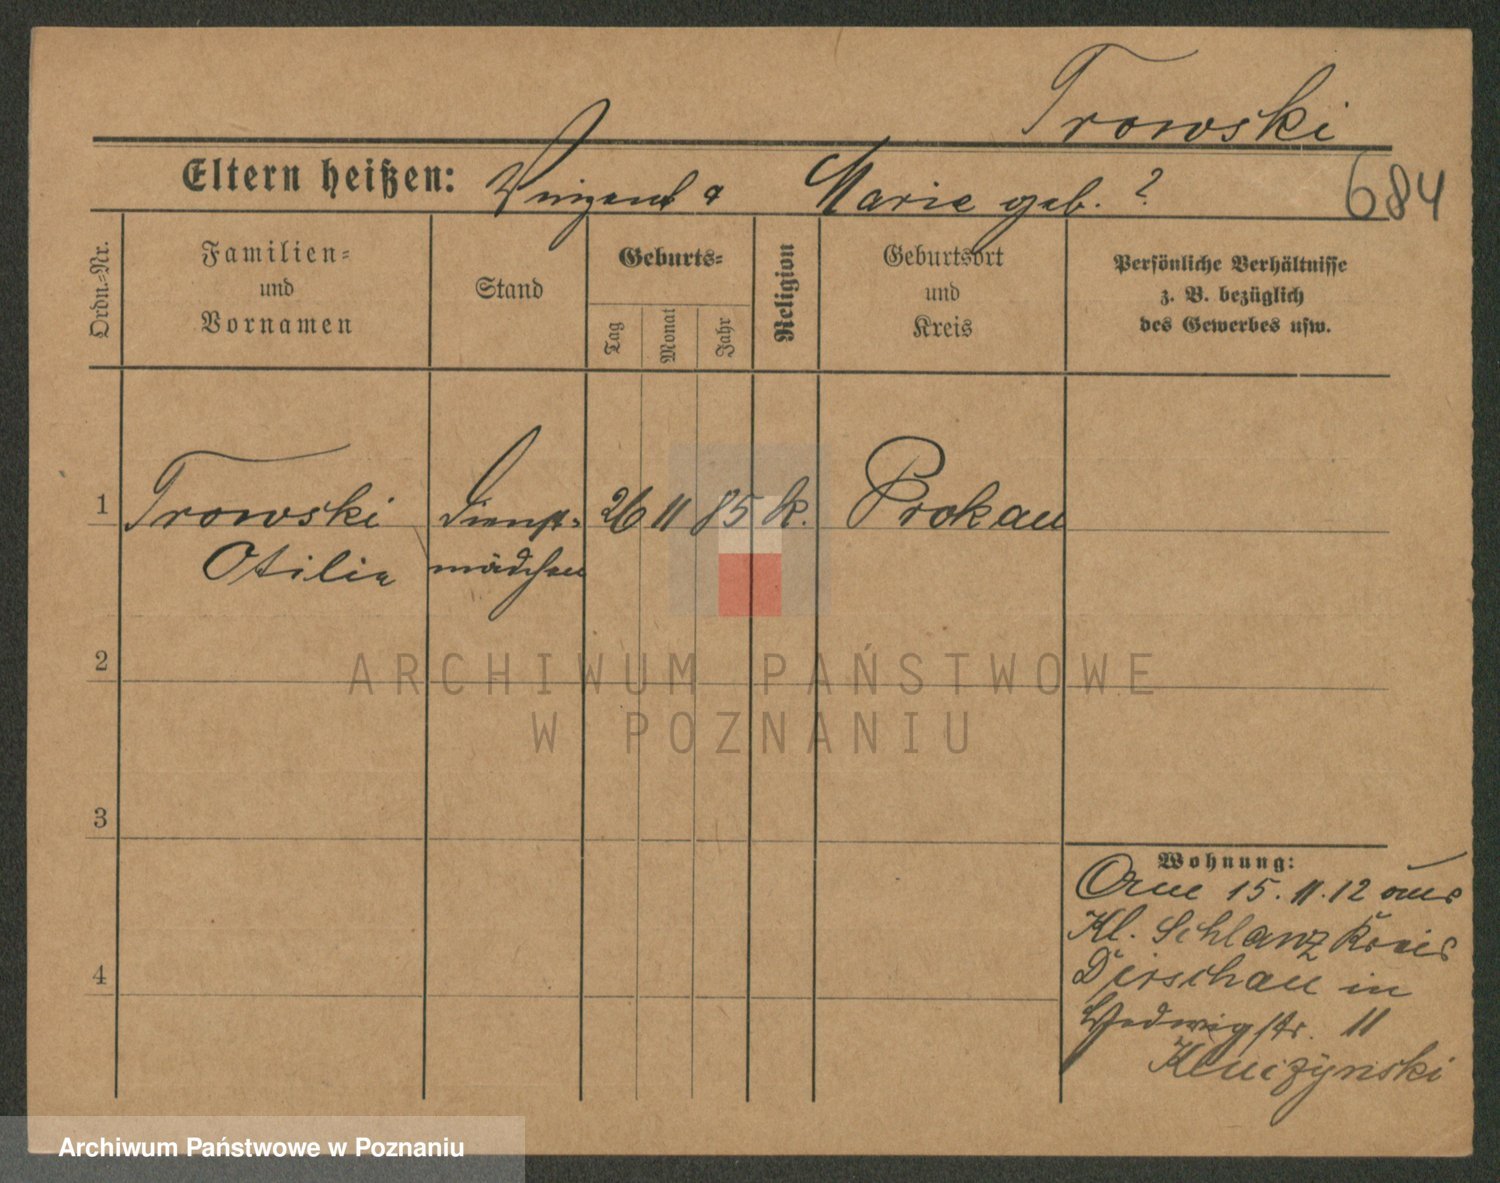 Trowski
Eltern heißen: Vinzent & Marie geb. ?
684
Ordn.=Nr.
Familien=
und
Vornamen
Stand
Geburts=
Tag
Monat
Jahr
Religion
Geburtsort
und
Kreis
Persönliche Verhältnisse
z. B. bezüglich
des Gewerbes usw.
1 Trowski Dienst- 26 11 85 k. Prokau
Otilie mädchen
2
3
4
Wohnung:
15.11.12 aus
Kl. Schlanz Kreis
Dirschau in
Hedwigstr. 11
ARCHIWUM PAŃSTWOWE
W POZNANIU
Archiwum Państwowe w Poznaniu